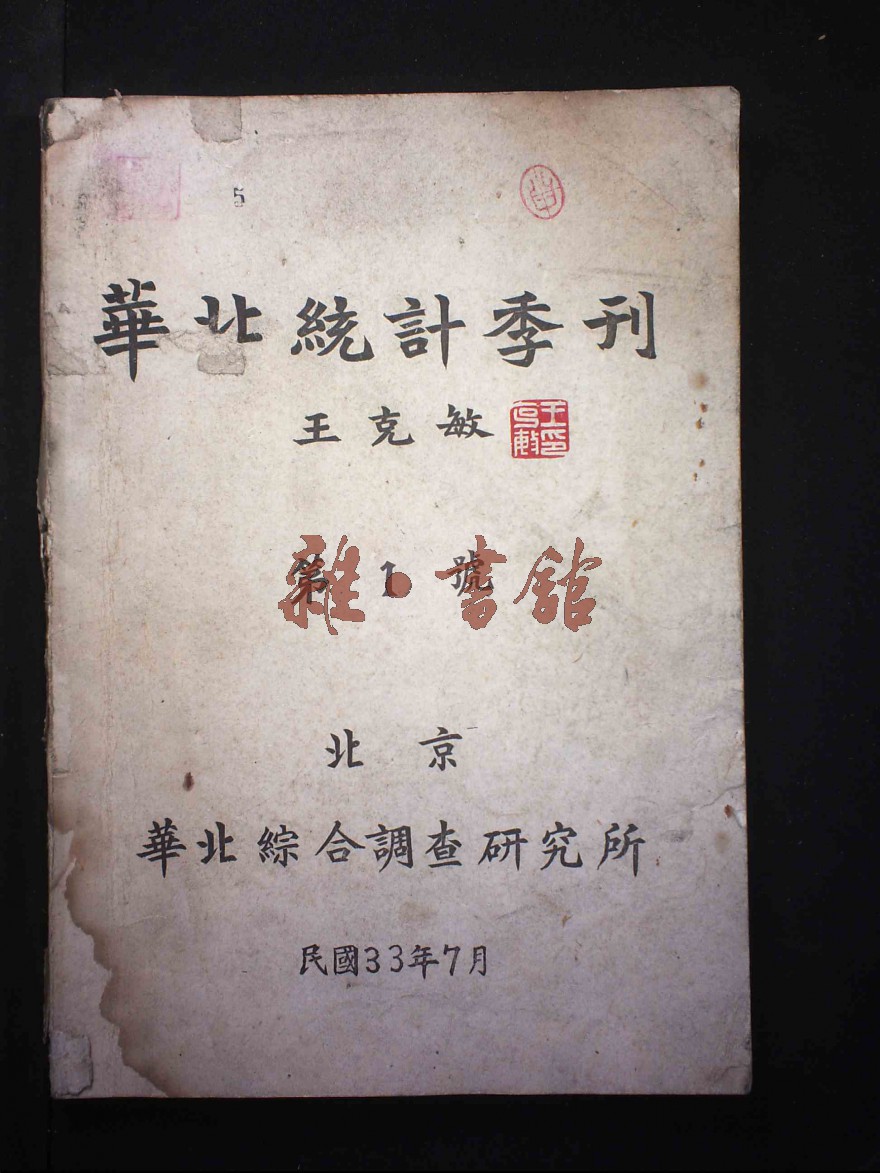 5
華北統計季刊
王克敏
王克敏印
第1號
雜·書館
北京
華北綜合調查研究所
民國33年7月